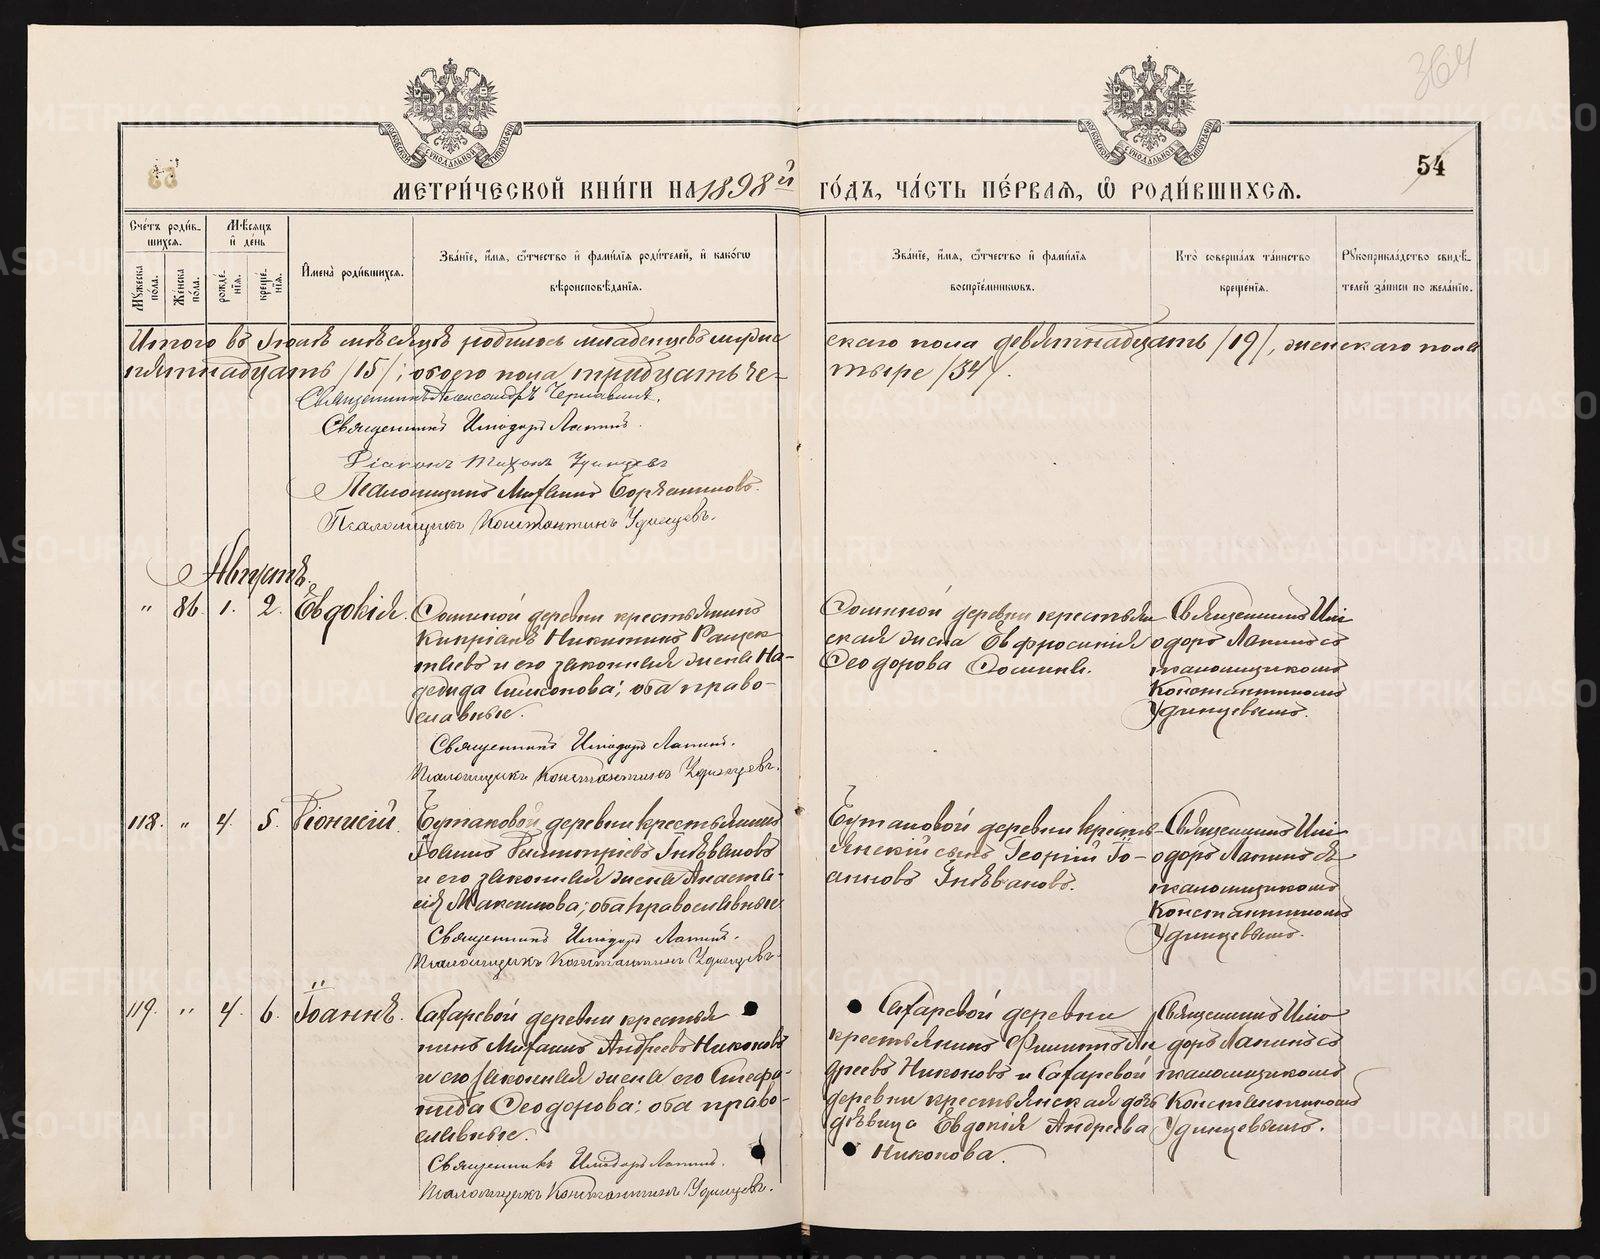 364
54
МЕТРИ́ЧЕСКОЙ КНИ́ГИ НА 1898й ГО́ДЪ, ЧА́СТЬ ПЕ́РВАѦ, Ѡ РОДИ́ВШИХСѦ.
Сче́тъ роди́в-
шихся.
Мѣ́сяцъ
и де́нь
Му́жеска
по́ла.
Же́нска
по́ла.
рожде́-
нія.
креще́-
нія.
Имена̀ роди́вшихся.
Зва́ніе, и́мя, ѻ́тчество и фами́лія роди́телей, и како́гѡ
вѣроисповѣ́данія.
Зва́ніе, и́мя, ѻ́тчество и фами́лія
воспріе́мниковъ.
Кто̀ соверша́лъ та́инство
креще́нія.
Рукоприкла́дство свидѣ́-
телей за́писи по жела́нію.
Итого въ Іюлѣ мѣсяцѣ родилось младенцевъ мужескаго пола девятнадцать /19/, женскаго пола
пятнадцать /15/; обоего пола тридцать че-тыре /34/.
Священникъ Александръ Чернавинъ.
Священникъ Иліодоръ Лапинъ.
Діаконъ Тихонъ Удинцевъ
Псаломщикъ Михаилъ
Псаломщикъ Константинъ Удинцевъ.
Августъ.
" 86. 1. 2. Евдокія.
Соминой деревни крестьянинъ
Кипріанъ Никитинъ
и его законная жена На-
дежда Симеонова; оба право-
славные.
Священникъ Иліодоръ Лапинъ.
Псаломщикъ Константинъ Удинцевъ.
Соминой деревни крестьян
ская жена Евфросинія
Ѳеодорова Сомина.
Священникъ Илі
одоръ Лапинъ съ
псаломщикомъ
Константиномъ
Удинцевымъ.
118. " 4. 5. Діонисій.
Бутаковой деревни крестьянинъ
Іоаннъ Димитріевъ Гнѣвановъ
и его законная жена Анаста-
сія Максимова; оба православные
Священникъ Иліодоръ Лапинъ.
Псаломщикъ Константинъ Удинцевъ.
Бутаковой деревни кресть-
янскій сынъ Георгій Іо-
анновъ Гнѣвановъ.
Священникъ Илі
одоръ Лапинъ съ
псаломщикомъ
Константиномъ
Удинцевымъ.
119. " 4. 6. Іоаннъ.
Сахаревой деревни крестья
нинъ Михаилъ Андреевъ Никоновъ
и его законная жена его Стефа-
нида Ѳеодорова; оба право-
славные.
Священникъ Иліодоръ Лапинъ.
Псаломщикъ Константинъ Удинцевъ.
Сахаревой деревни
крестьянинъ Филиппъ Ан
дреевъ Никоновъ и Сахаревой
деревни крестьянская дочь
дѣвица Евдокія Андреева
Никонова.
Священникъ Иліо
доръ Лапинъ съ
псаломщикомъ
Константиномъ
Удинцевымъ.
METRIKI.GASO-URAL.RU